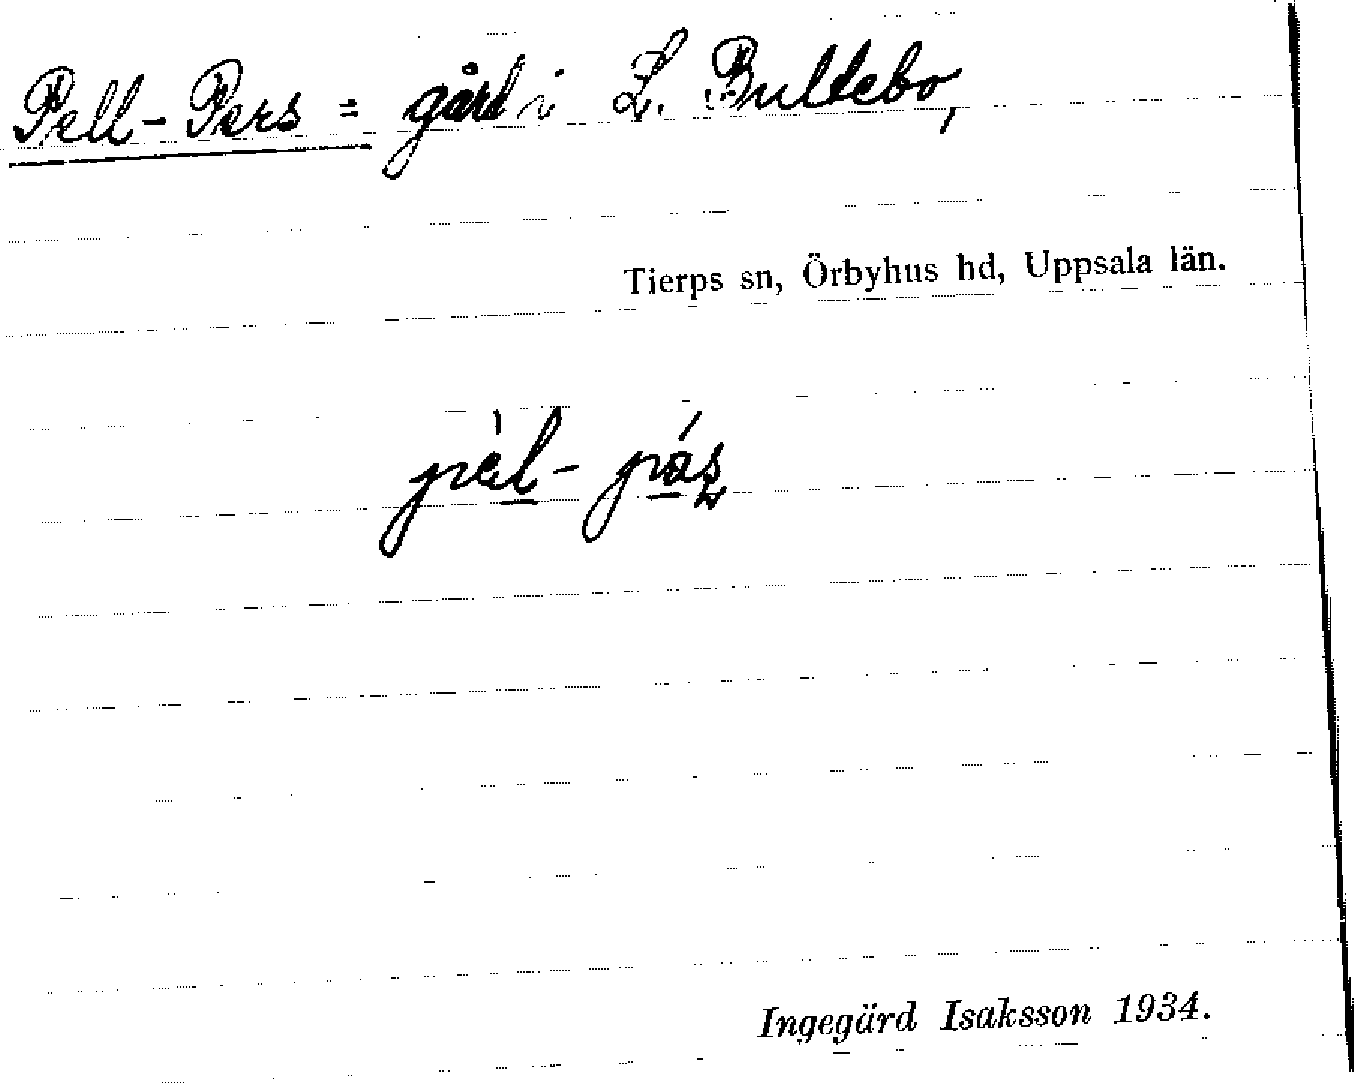 Pell-Pers = gård i L. Bultebo,
Tierps sn, Örbyhus hd, Uppsala län.
pèl- pás
Ingegärd Isaksson 1934.